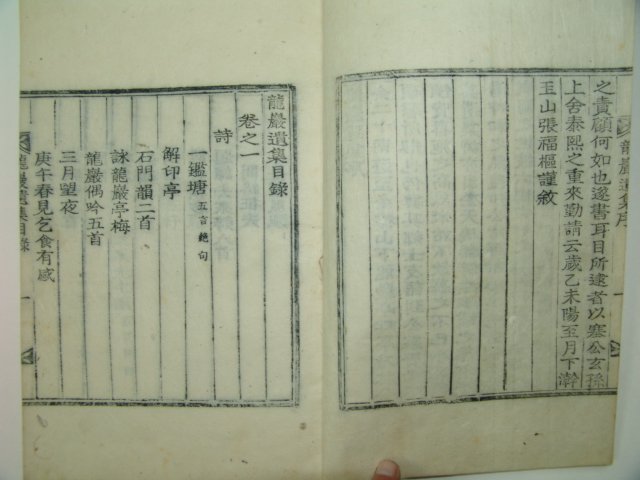 之責顧何如也遂書耳目所逮者以塞公玄孫
上舍泰熙之重來勤請云歲乙未陽至月下澣
玉山張福樞謹敘
龍巖遺集序
龍巖遺集目錄
卷之一
詩
一鑑塘 五言絶句
解印亭
石門韻二首
詠龍巖亭梅
龍巖偶吟五首
三月望夜
庚午春見乞食有感
龍巖遺集目錄
一